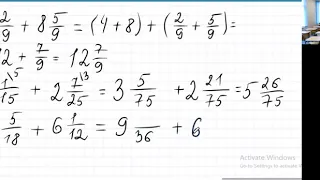 2/9 + 8 5/9 = (4+8) + (2/9 + 5/9) =
12 + 7/9 = 12 7/9
1/15 \5 + 2 7/25 \3 = 3 5/75 + 2 21/75 = 5 26/75
5/18 + 6 1/12 = 9 /36 + 6
Activate Windows
Go to Settings to activate Windows.